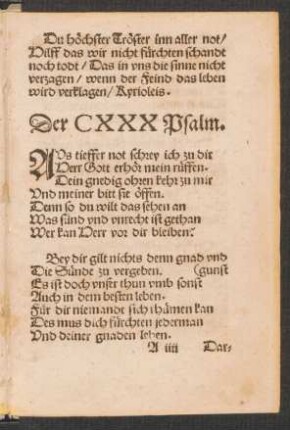 Du höchster Tröster inn aller not/
Hilff das wir nicht fürchten schandt
noch todt/ Das in vns die sinne nicht
verzagen/ wenn der Feind das leben
wird verklagen/ Kyrioleis.
Der CXXX Psalm.
AVs tieffer not schrey ich zu dir
Herr Gott erhör mein rüffen.
Dein gnedig ohren kehr zu mir
Vnd meiner bitt sie öffen.
Denn so du wilt das sehen an
Was sünd vnd vnrecht ist gethan
Wer kan Herr vor dir bleiben?
Bey dir gilt nichts denn gnad vnd
Die Sünde zu vergeben. (gunst
Es ist doch vnser thun vmb sonst
Auch in dem besten leben.
Für dir niemande sich rhümen kan
Des mus dich fürchten jederman
Vnd deiner gnaden leben.
A iiii Dar-